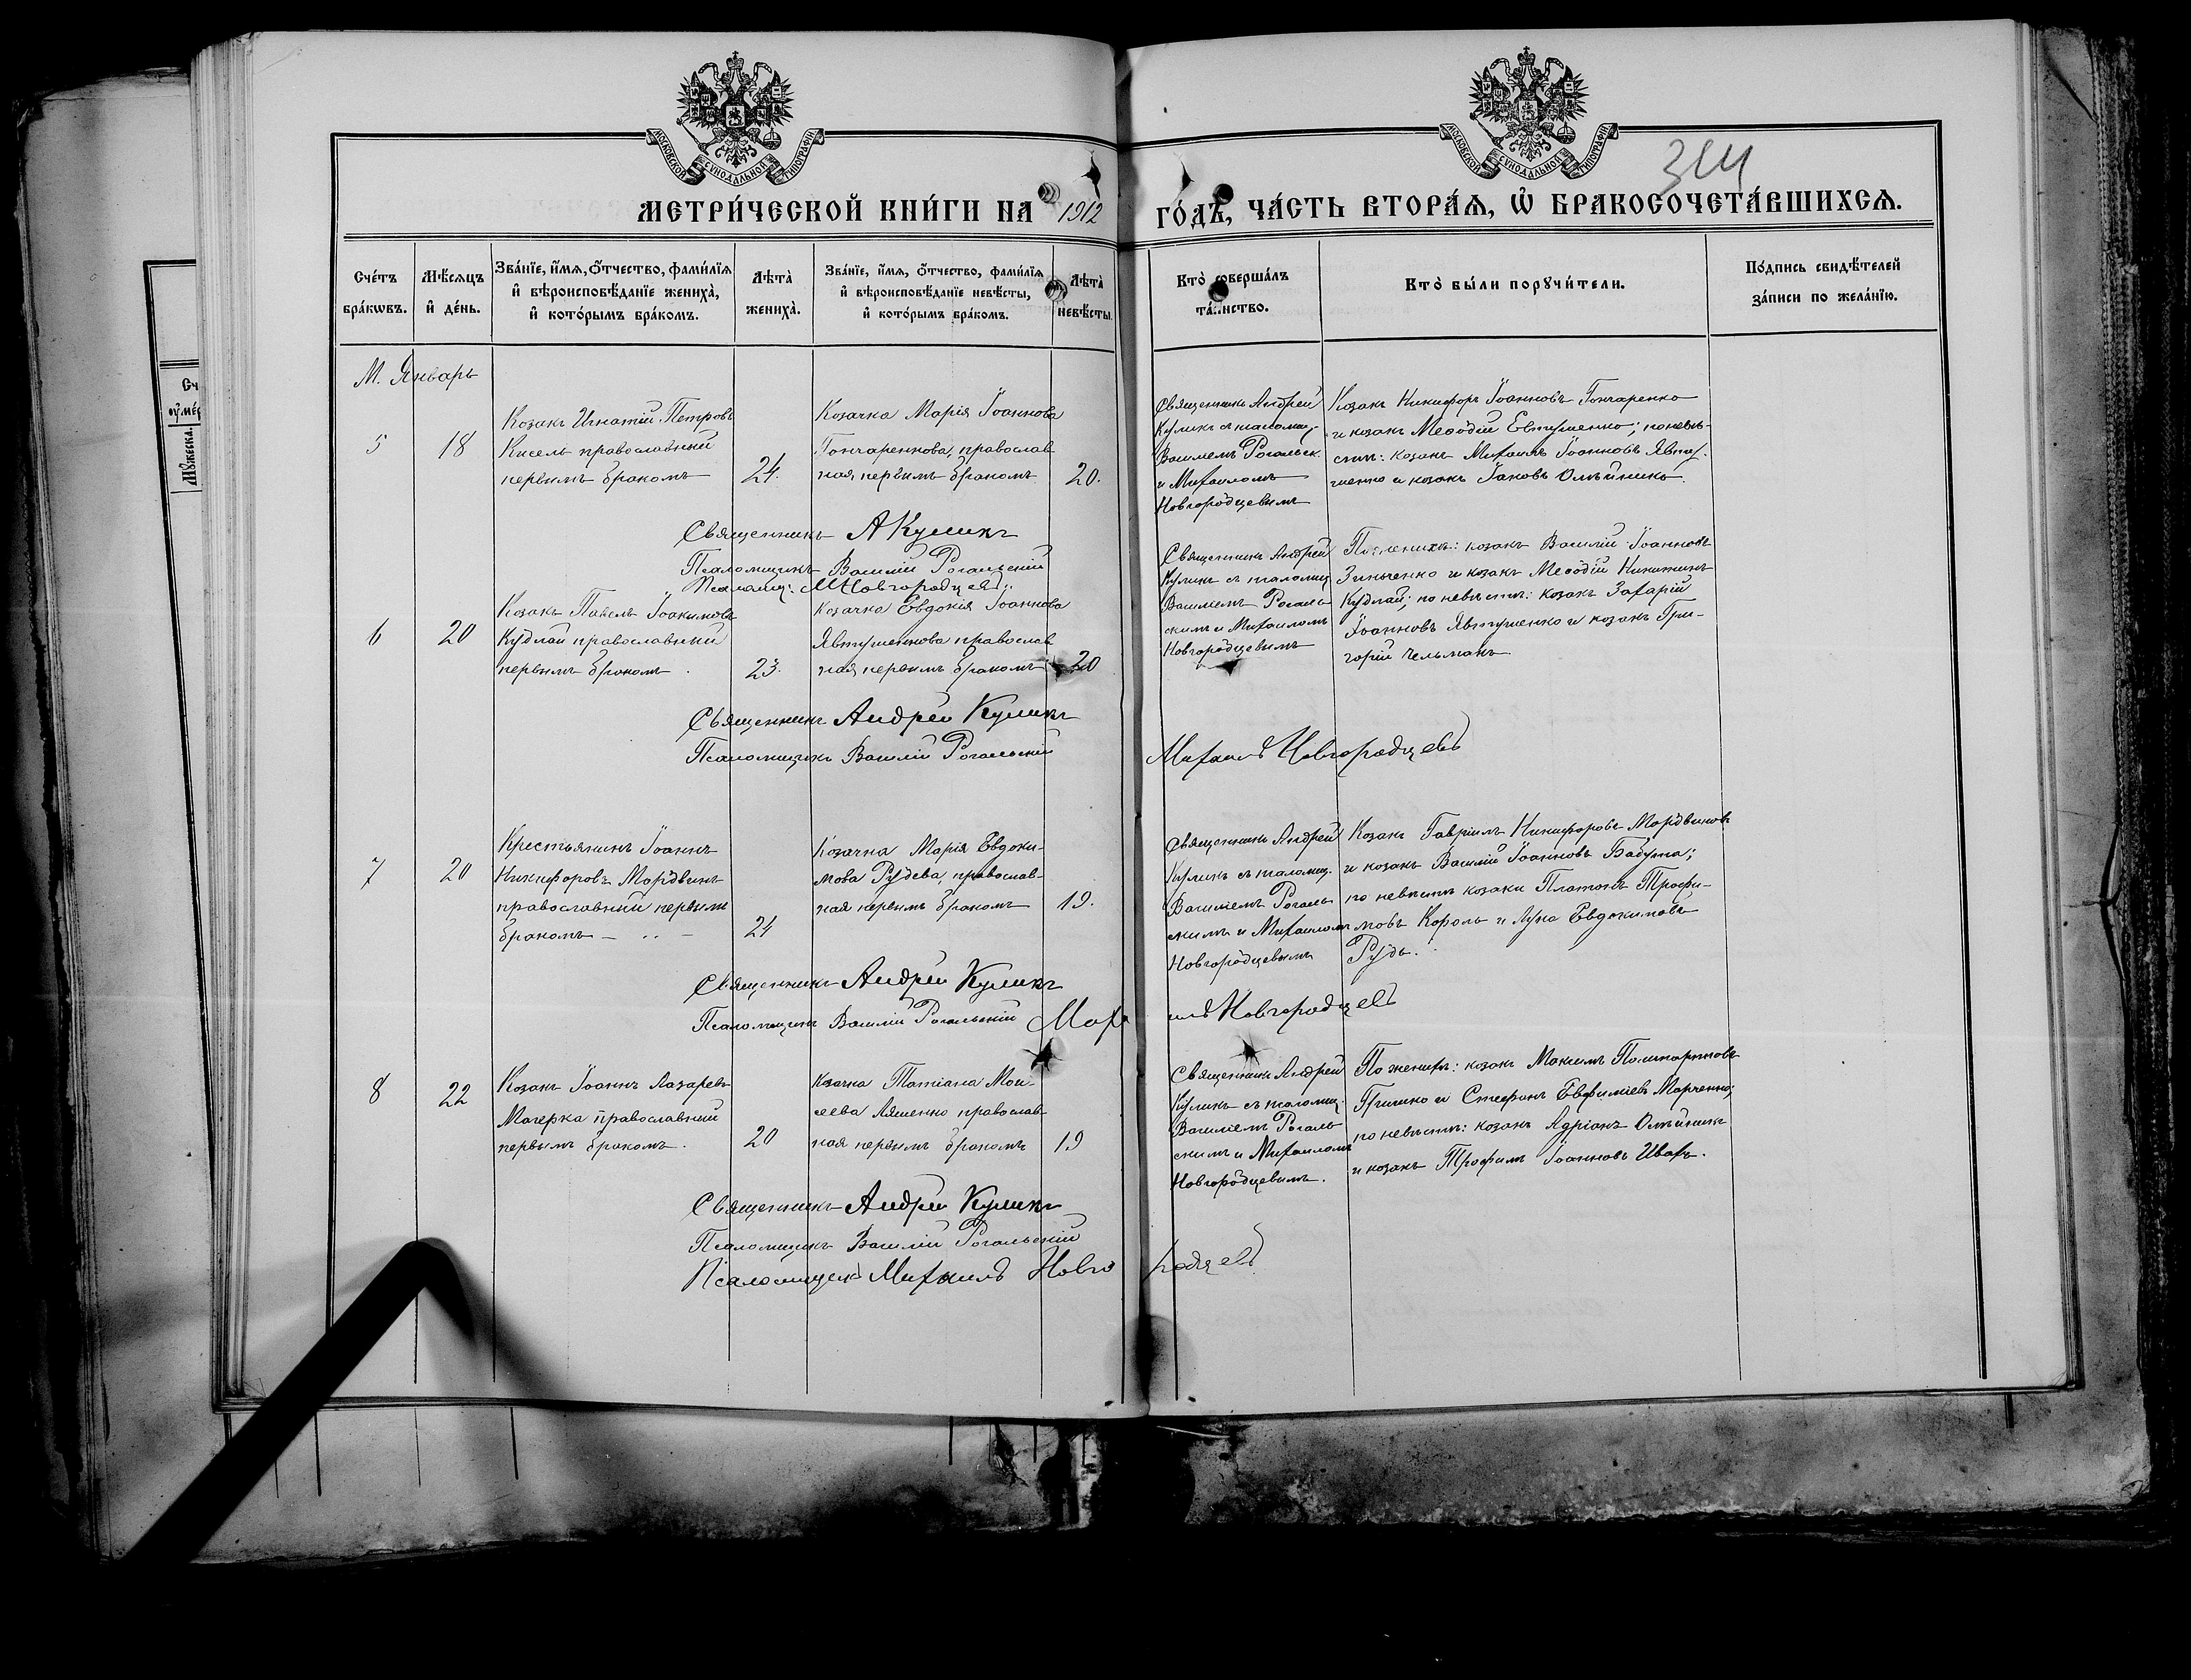 МОСКОВСКОЙ СѴНОДАЛЬНОЙ ТИПОГРАФІИ
МОСКОВСКОЙ СѴНОДАЛЬНОЙ ТИПОГРАФІИ
314
МЕТРИ́ЧЕСКОЙ КНИ́ГИ НА 1912 ГО́ДЪ, ЧА́СТЬ ВТОРА́Ѧ, Ѡ҆ БРАКОСОЧЕТА́ВШИХСѦ.
Сче́тъ бра́кѡвъ.
Мѣ́сѧцъ и҆ де́нь.
Зва́нїе, и҆́мѧ, ѻ҆́тчество, фами́лїѧ
и҆ вѣроисповѣ́данїе жениха̀,
и҆ кото́рымъ бра́комъ.
Лѣта̀ жениха̀.
Зва́нїе, и҆́мѧ, ѻ҆́тчество, фами́лїѧ
и҆ вѣроисповѣ́данїе невѣ́сты,
и҆ кото́рымъ бра́комъ.
Лѣта̀ невѣ́сты.
Кто̀ соверша́лъ
та́инство.
Кто̀ бы́ли порꙋчи́тели.
По́дпись свидѣ́телей
за́писи по жела́нїю.
М. Январь
5
18
Козакъ Игнатій Петровъ
Кисель православный
первымъ бракомъ
24.
Козачка Марія Іоаннова
Гончаренкова, православ
ная первымъ бракомъ
20.
Священникъ Андрей
Куликъ съ псаломщ.
Василіемъ Рогальск.
и Михаиломъ
Новгородцевымъ
Козакъ Никифоръ Іоанновъ Гончаренко
и козакъ Меѳодій Евтушенко; по невѣ-
стѣ: козакъ Михаилъ Іоанновъ Явту-
шенко и козакъ Іаковъ Олѣйникъ.
Священникъ А Куликъ
Псаломщикъ Василій Рогальскій
Псаломщ: М Новгородцевъ
6
20
Козакъ Павелъ Іоакимовъ
Кудлай православный
первымъ бракомъ.
23.
Козачка Евдокія Іоаннова
Явтушенкова православ
ная первымъ бракомъ
20
Священникъ Андрей
Куликъ съ псаломщ
Василіемъ Рогаль
скимъ и Михаиломъ
Новгородцевымъ
По женихѣ: козакъ Василій Іоанновъ
Зинченко и козакъ Меѳодій Никитинъ
Кудлай; по невѣстѣ: козакъ Захарій
Іоанновъ Явтушенко и козакъ Гри-
горій Чельманъ
Священникъ Андрей Куликъ
Псаломщикъ Василій Рогальскій
Михаилъ Новгородцевъ
7
20
Крестьянинъ Іоаннъ
Никифоровъ Мордвинъ
православный первымъ
бракомъ
24
Козачка Марія Евдоки-
мова Рудева, православ-
ная первымъ бракомъ
19.
Священникъ Андрей
Куликъ съ псаломщ.
Василіемъ Рогаль
скимъ и Михаиломъ
Новгородцевымъ
Козакъ Гавріилъ Никифоровъ Мордвиновъ
и козакъ Василій Іоанновъ Бабута;
по невѣстѣ козаки Платонъ Трофи-
мовъ Король и Лука Евдокимовъ
Рудь.
Священникъ Андрей Куликъ
Псаломщикъ Василій Рогальскій Михаилъ Новгородцевъ
8
22
Козакъ Іоаннъ Лазаревъ
Магерка православный
первымъ бракомъ.
20
Козачка Татіана Мои-
сеева Ляшенко православ-
ная первымъ бракомъ
19
Священникъ Андрей
Куликъ съ псаломщ.
Василіемъ Рогаль
скимъ и Михаиломъ
Новгородцевымъ.
По женихѣ: козакъ Максимъ Поликарповъ
Гришко и Стефанъ Евфиміевъ Марченко;
по невѣстѣ: козакъ Адріанъ Олѣйникъ
и козакъ Трофимъ Іоанновъ Ивахъ.
Священникъ Андрей Куликъ
Псаломщикъ Василій Рогальскій
Псаломщикъ Михаилъ Новгородцевъ